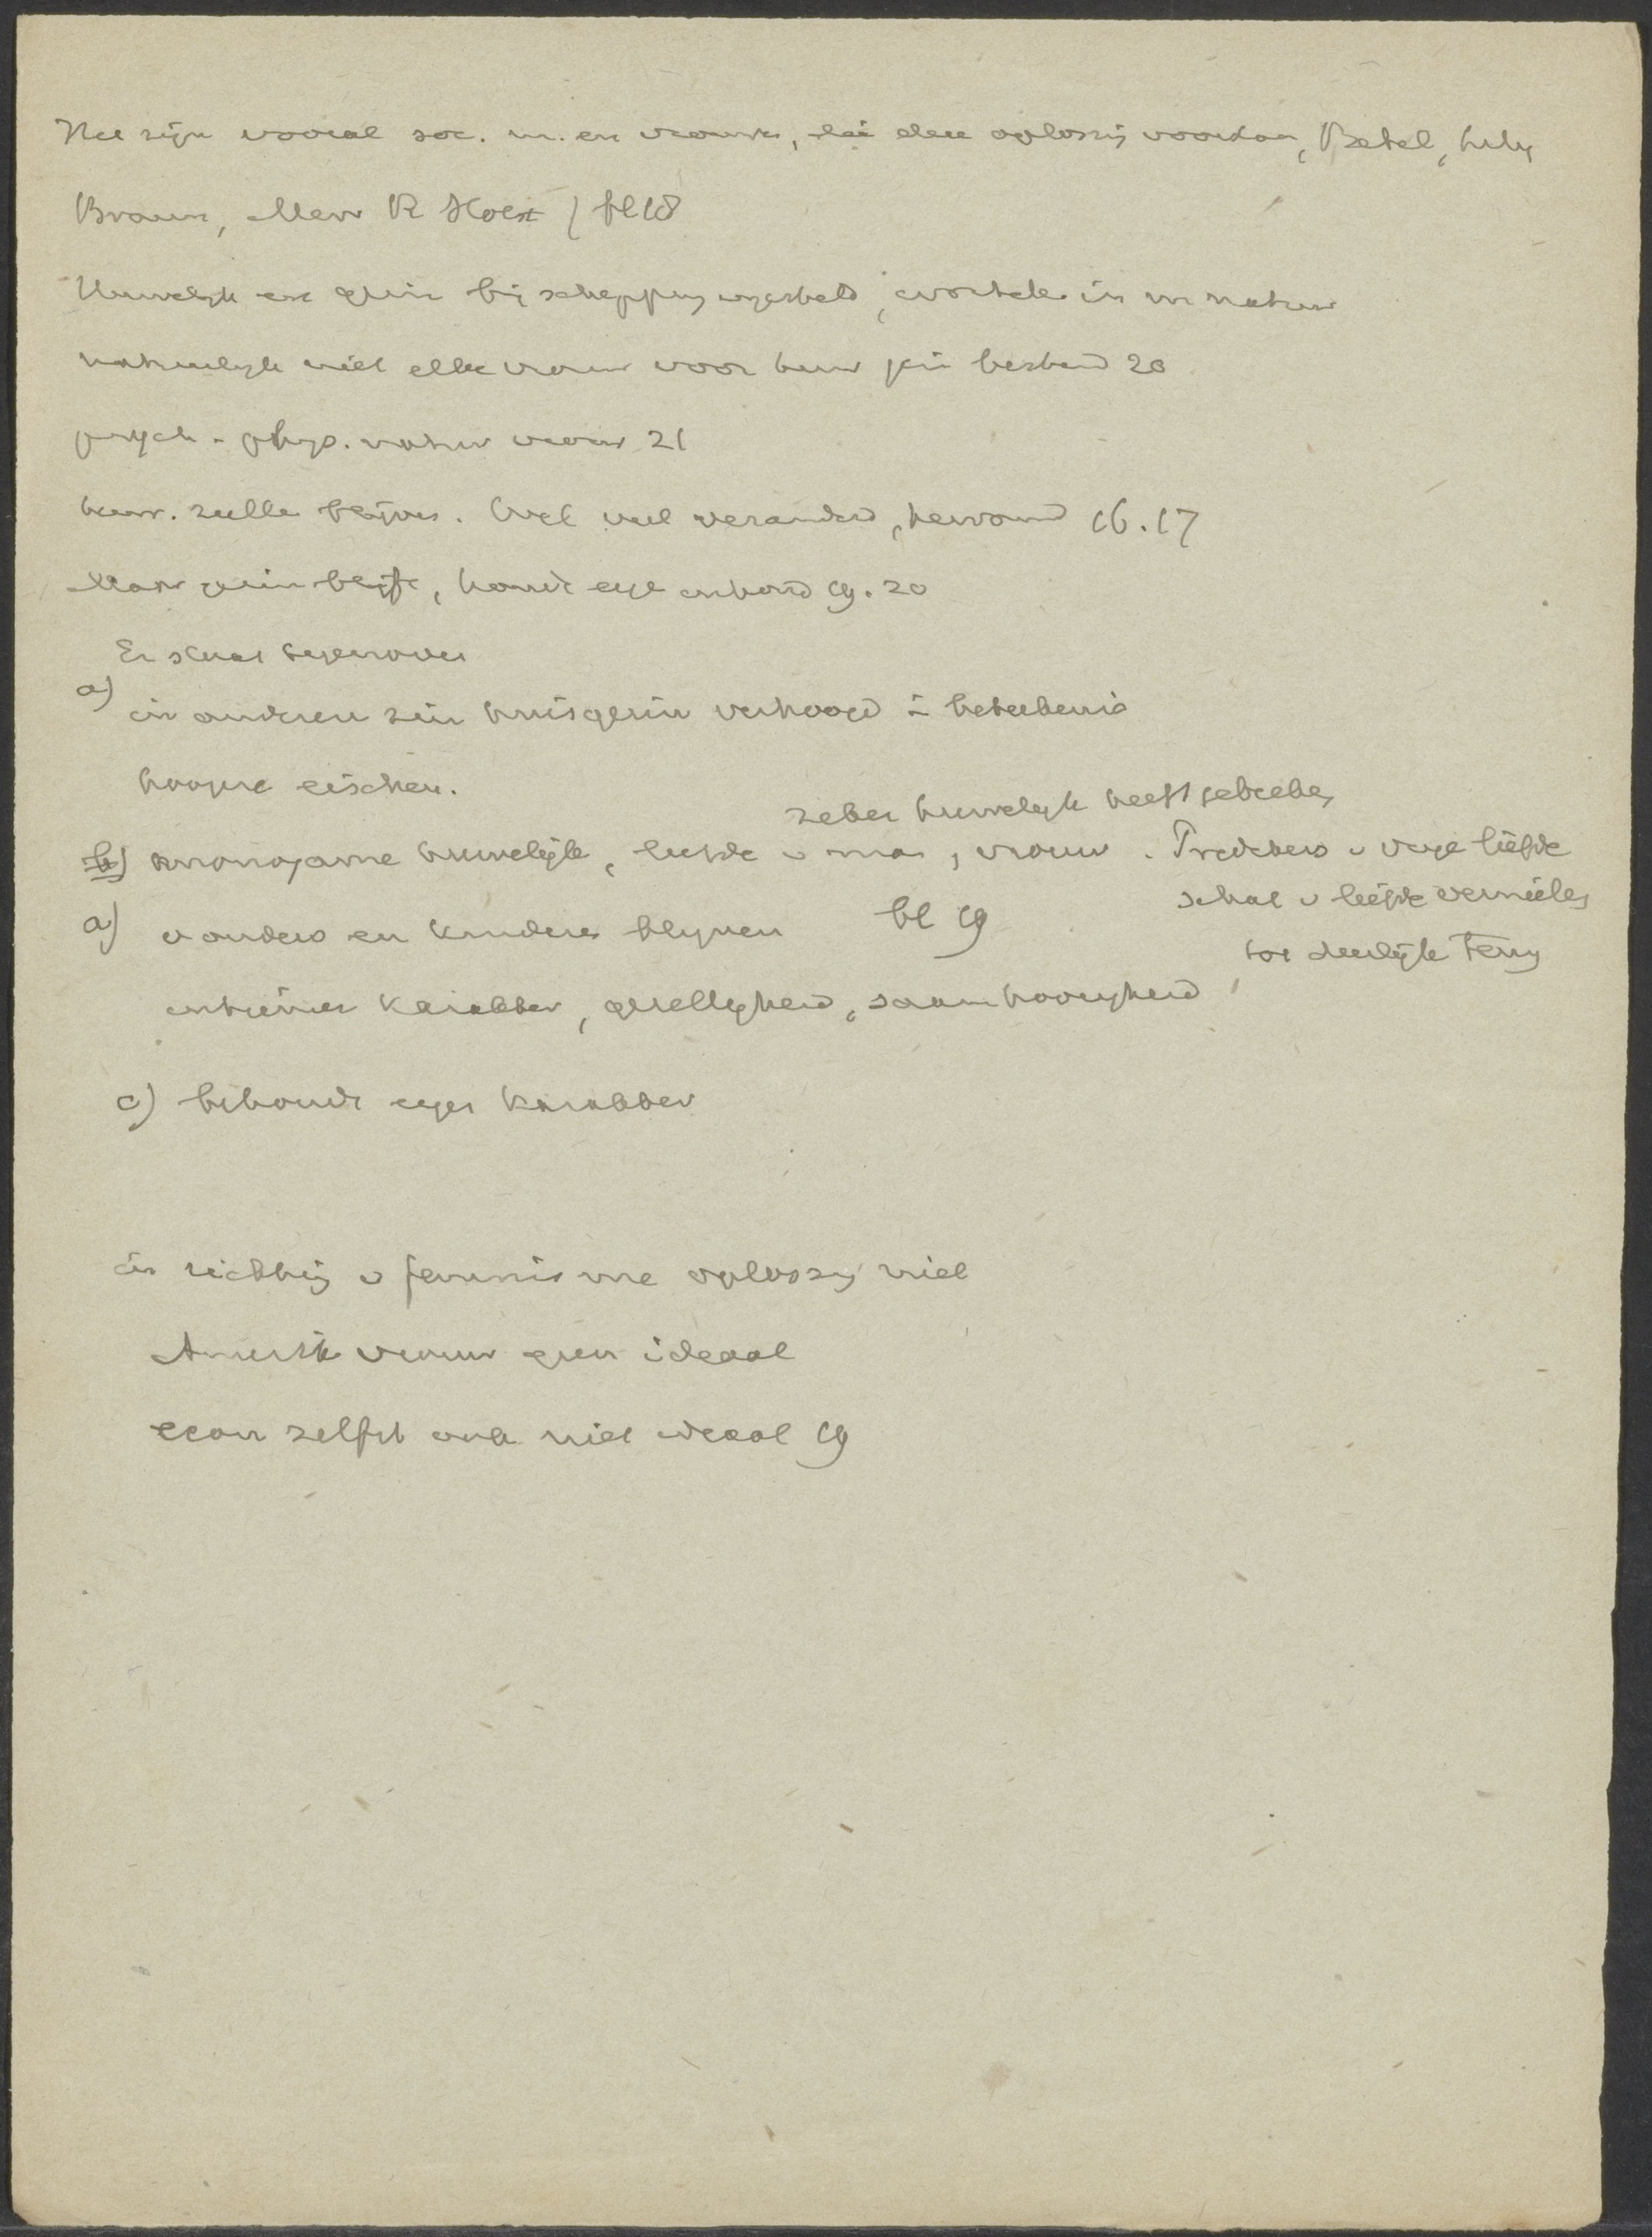 Het zijn vooral soc. m. en vrouwen, die deze oplossing voorstaan, Bebel, Lily
Braun, Mevr R Holst / bl 18
Huwelijk en gezin bij schepping ingesteld, wortelen in m natuur
natuurlijk niet elke vrouw voor huw gezin bestemd 20
psych - phys. natuur vrouw 21
huw. zullen blijven. Wel veel veranderd, hervormd 16. 17
Maar gezin blijft, houdt eigen inhoud 19. 20
Er staat tegenover
a) in anderen zin huisgezin verhoogd in beteekenis
hoogere eischen.
zeker huwelijk heeft gebreken
b) monogame huwelijk, liefde v man, vrouw. Predikers v vrije liefde
schat v liefde vernielen
a) v ouders en kinderen blijven bl 19
tot dierlijke terug
intiemer karakter, gezelligheid, saamhoorigheid
c) behoudt eigen karakter
in richting v feminisme oplossing niet
Amerik vrouw geen ideaal
econ zelfst ook niet ideaal 19